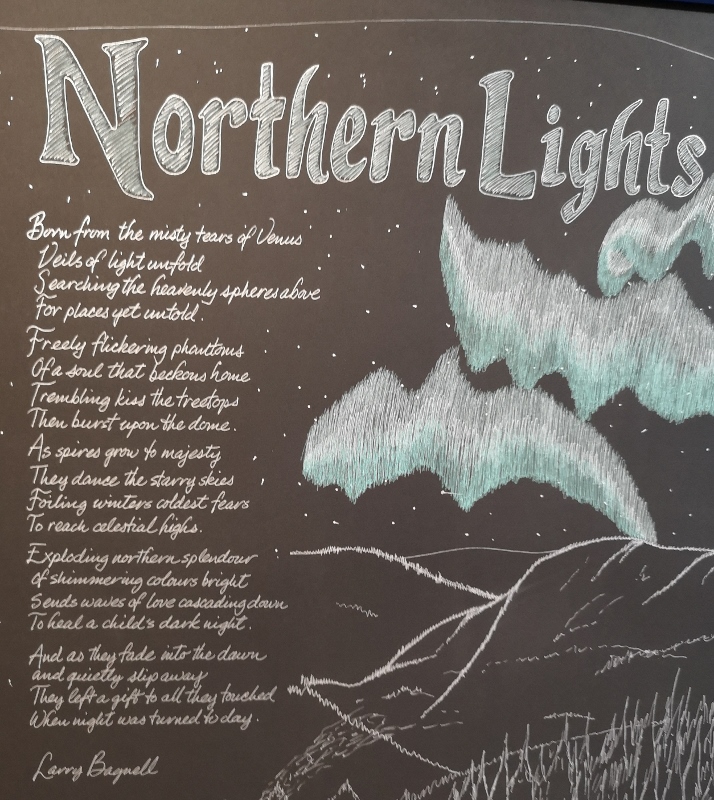 Northern Lights
Born from the misty tears of Venus
Veils of light unfold
Searching the heavenly spheres above
For places yet untold.
Freely flickering phantoms
Of a soul that beckons home
Trembling kiss the treetops
Then burst upon the dome.
As spires grow to majesty
They dance the starry skies
Foiling winters coldest fears
To reach celestial highs.
Exploding northern splendour
Of shimmering colours bright
Sends waves of love cascading down
To heal a child's dark night.
And as they fade into the dawn
and quietly slip away
They left a gift to all they touched
When night was turned to day.
Larry Bagnell